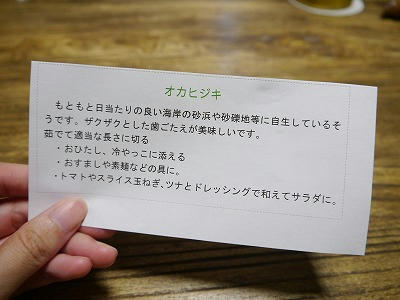 オカヒジキ
もともと日当たりの良い海岸の砂浜や砂礫地等に自生しているそ
うです。ザクザクとした歯ごたえが美味しいです。
茹でて適当な長さに切る
・おひたし、冷やっこに添える
・おすましや素麺などの具に。
・トマトやスライス玉ねぎ、ツナとドレッシングで和えてサラダに。